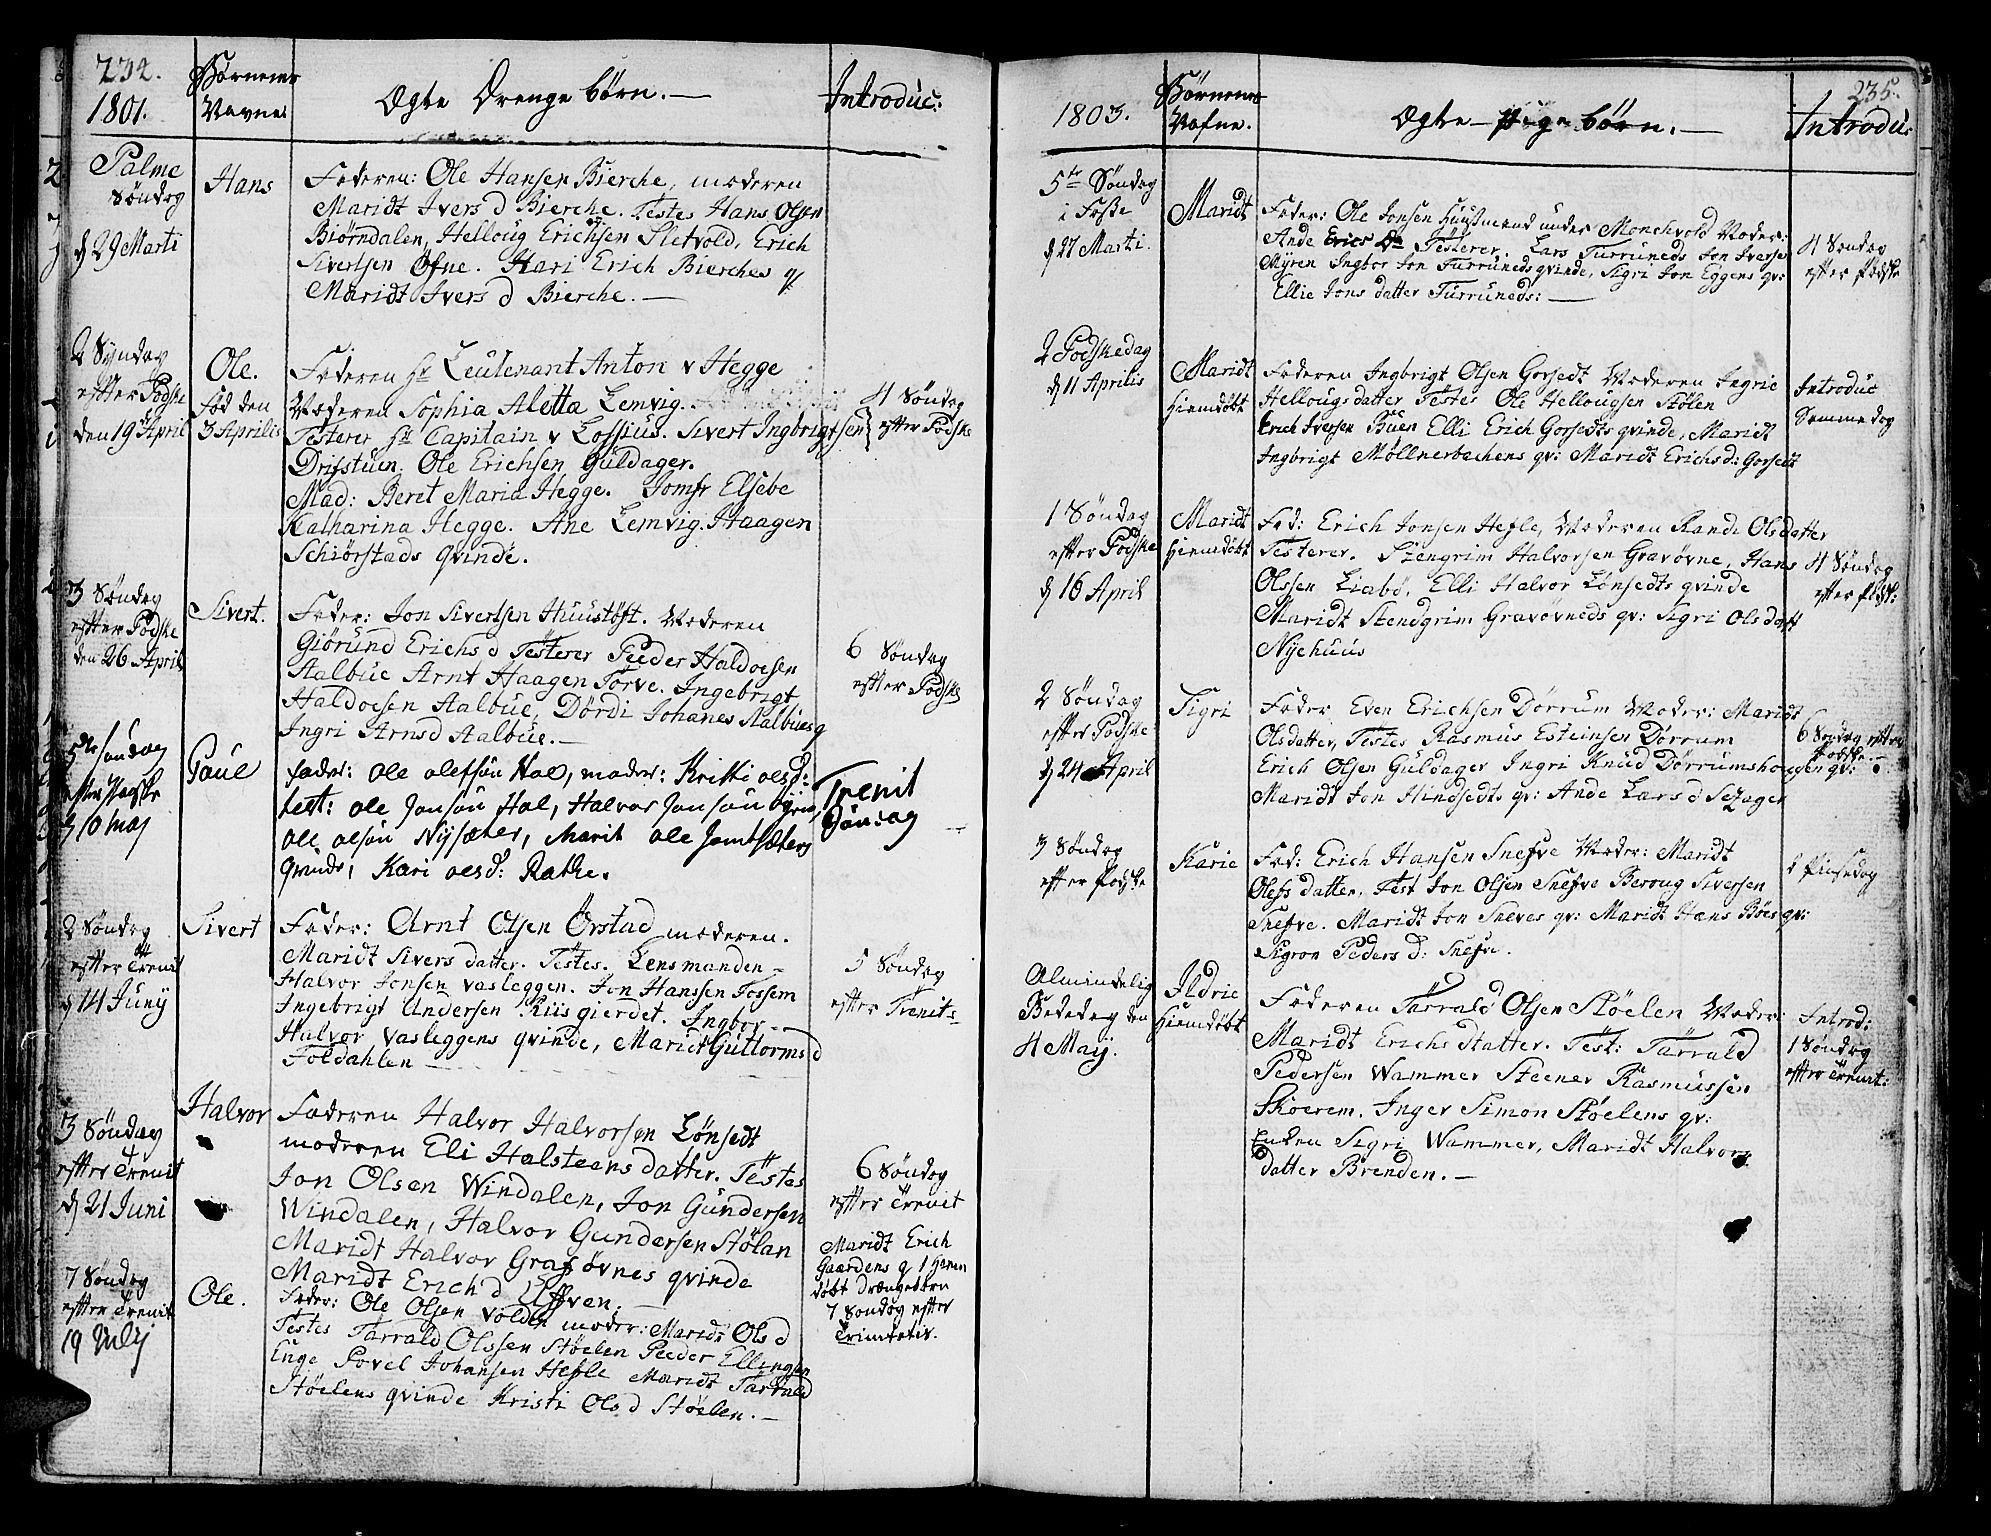 234.
1801.
Børnenes
Navne
Ægte Drenge børn. —
Introduc:
Palme
Søndag
d 29 Marti
Hans
Faderen: Ole Hansen Bierche, moderen
Maridt Ivers d Bierche. Testes Hans Olsen
Biørndalen, Helloug Erichsen Sletvold, Erich
Sivertsen Øfne. Hari Erich Bierches q
Maridt Ivers d Bierche. —
2 Syndag
efter Podske
den 19 April
Ole.
fød den
3 Aprilis
Faderen Hr Leutenant Anton v Hegge
Moderen Sophia Aletta Lemvig.
Testerer Hr Capitain v Lossius. Sivert Ingbrigtsen
Drifstuen. Ole Erichsen Guldager.
Mad: Beret Maria Hegge. Jomfr Elsebe
Katharina Hegge. Ane Lemvig. Haagen
Schiørstads qvinde.
4 Søndag
efter Podske
3 Søndag
efter Podske
den 26 April
Sivert.
Fader: Jon Sivertsen Huustoft. Moderen
Giørund Erichs d Testerer Peder Haldoesen
Aalbue Arnt Haagen Torve. Ingebrigt
Haldoesen Aalbue, Dørdi Johanes Aalbues q
Ingri Arnsd Aalbue. —
6 Søndag
efter Podske
5te søndag
efter Paaske
d 10 maj
Paul
fader: ole olefsøn Hol, moder: Kristi olesd:
test: ole Jonsøn Hol, Halvor Jonsøn
ole olsøn Nysæter, Marit ole Jamtsæters
qvinde, Kari olesd: Rathe.
Trenit
Søndag
2 Søndag
efter Trenit
d 14 Juny
Sivert
Fader: Arnt Olsen Ørstad moderen.
Maridt Sivers datter. Testes. Lensmanden —
Halvor Jonsen Vasleggen. Jon Hanssen Fossem
Ingebrigt Andersen Riisgierdet. Ingbor —
Halvor Vasleggens qvinde, Maridt Guttormsd
Foldahlen —
5 Søndag
efter Trenits
3 Søndag
efter Trenit
d 21 Juni
Halvor
Faderen Halvor Halvorsen Lønsedt
moderen Eli Halsteens datter. Testes
Jon Olsen Windalen, Jon Gundersen
Windalen, Halvor Gundersen Stølan
Maridt Halvor Graføvnes qvinde
Maridt Erich d Uffven. —
6 Søndag
efter Trenit
7 Søndag
efter Trenit
19 July
Ole.
Fader: Ole Olsen Volden moder: Maridt Ols d
Testes Tarrald Olssen Støelen Peder Ellingsen
Enge Povel Johansen Hefle Maridt Tarrald
Støelens qvinde Kristi Ols d Støelen. —
Maridt Erich
Gaardens q 1 Hiem
døbt Drængebarn
7 Søndag efter
Trinitatis.
235.
1803.
Børnenes
Nafne.
Ægte — Pige børn. —
Introdu:
5te Søndag
i Faste
d 27 Marti.
Maridt
Fader: Ole Jonsen Huusmand under Monchvold Moder:
Ande Erics Dr Testerer. Lars Turruneds Jon Iversen
Myren Ingbor Jon Turruneds qvinde, Sigri Jon Eggens qv:
Ellie Jons datter Turruneds: —
4 Søndag
efter Podske
2 Podskedag
d 11 Aprilis
Maridt
Hiemdøbt
Faderen Ingbrigt Olsen Gorsedt Moderen Ingrie
Hellougsdatter Testes Ole Hellougsen Stølen
Erich Iversen Buen Elli Erich Gorsedts qvinde, Maridt
Ingbrigt Møllnerbachens qv: Maridt Erichs d: Gorsedt
Introduc
Sammedag
1 Søndag
efter Podske
d 16 April
Maridt
hiemdøbt
Fad: Erich Jonsen Hefle, Moderen Randi Olsdatter
Testerer. Stengrim Halvorsen Gravøvne, Hans
Olssen Liabø, Elli Halvor Lønsedts qvinde
Maridt Stendgrim Gravøvneds qv: Sigri Olsdatt
Nyehuus
4 Søndag
efter Podsk:
2 Søndag
efter Podske
d 24 April
Sigri
Fader Even Erichsen Dørrum Moder: Maridt
Olsdatter, Testes Rasmus Esteinsen Dørrum
Erich Olsen Guldager Ingri Knud Dørrumshougen qv:
Maridt Jon Hindsedts qv: Ande Lars d Sezager
6 Søndag efter
Podske —
3 Søndag
efter Podske
Karie
Fad: Erich Hansen Snefve Moder: Maridt
Olefs datter, Test Jon Olsen Snefve Beroug Siversen
Snefve. Maridt Jon Sneves qv: Maridt Hans Bøes qv:
Sigron Peders d: Snefve.
2 Pinsedag
Almindelig
Bededag den
4 Maij.
Ildrie
Hiemdøbt
Faderen Tarrald Olsen Støelen Moder:
Maridt Erichs datter. Test: Tarrald
Pedersen Wammer Steener Rasmussen
Skoerem. Inger Simon Støelens qv:
Enken Sigri Wammer, Maridt Halvors
datter Brenden. —
Introd:
1 Søndag
efter Trenit: